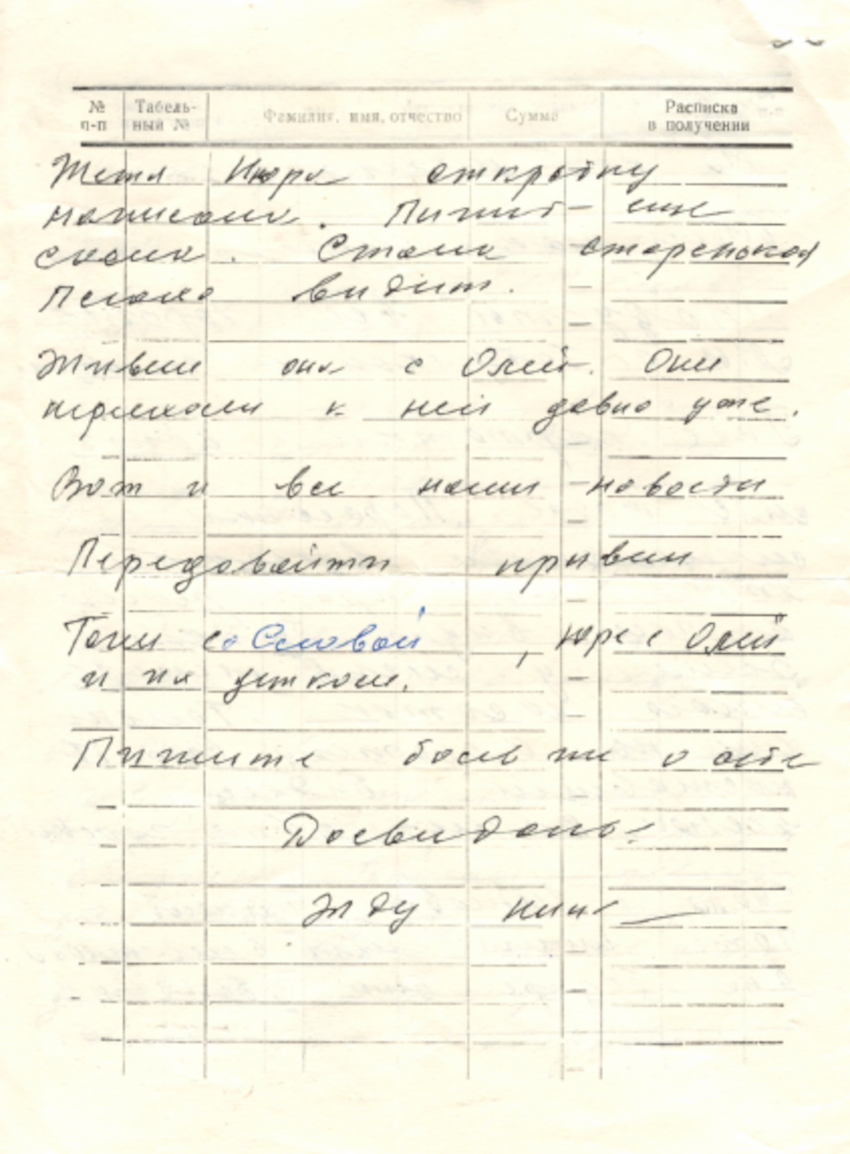 № п-п Табель-ный № Фамилия, имя, отчество Сумма Расписка в получении
Тетя Нюра открытку
написала. Пишит еще
сама. Стала старенькая
плохо видит.
Живет она с Олей. Они
переехали к ней давно уже.
Вот и все наши новости
Передавайти привет
Тани со Славой, Юре с Олей
и их деткам.
Пишите больше о себе
Досвидань
Жду